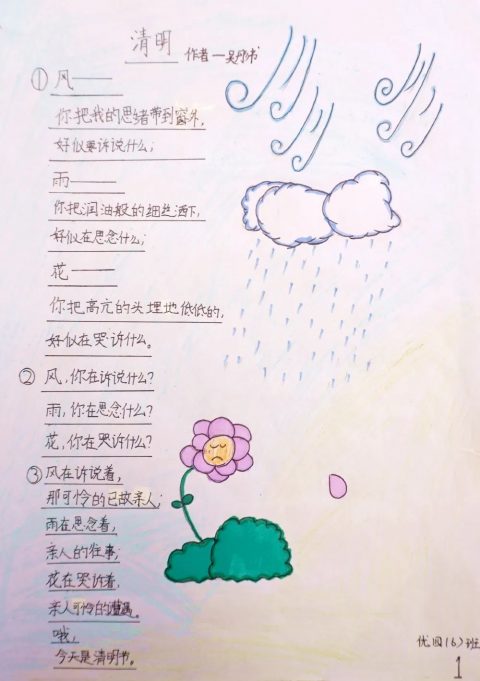 清明
作者一吴彤书
①风——
你把我的思绪带到窗外,
好似要诉说什么;
雨——
你把润油般的细丝洒下,
好似在思念什么;
花——
你把高亢的头埋地低低的,
好似在哭诉什么。
②风,你在诉说什么?
雨,你在思念什么?
花,你在哭诉什么?
③风在诉说着,
那可怜的已故亲人;
雨在思念着,
亲人的往事;
花在哭诉着,
亲人可怜的遭遇。
哦,
今天是清明节。
优园(6)班
1